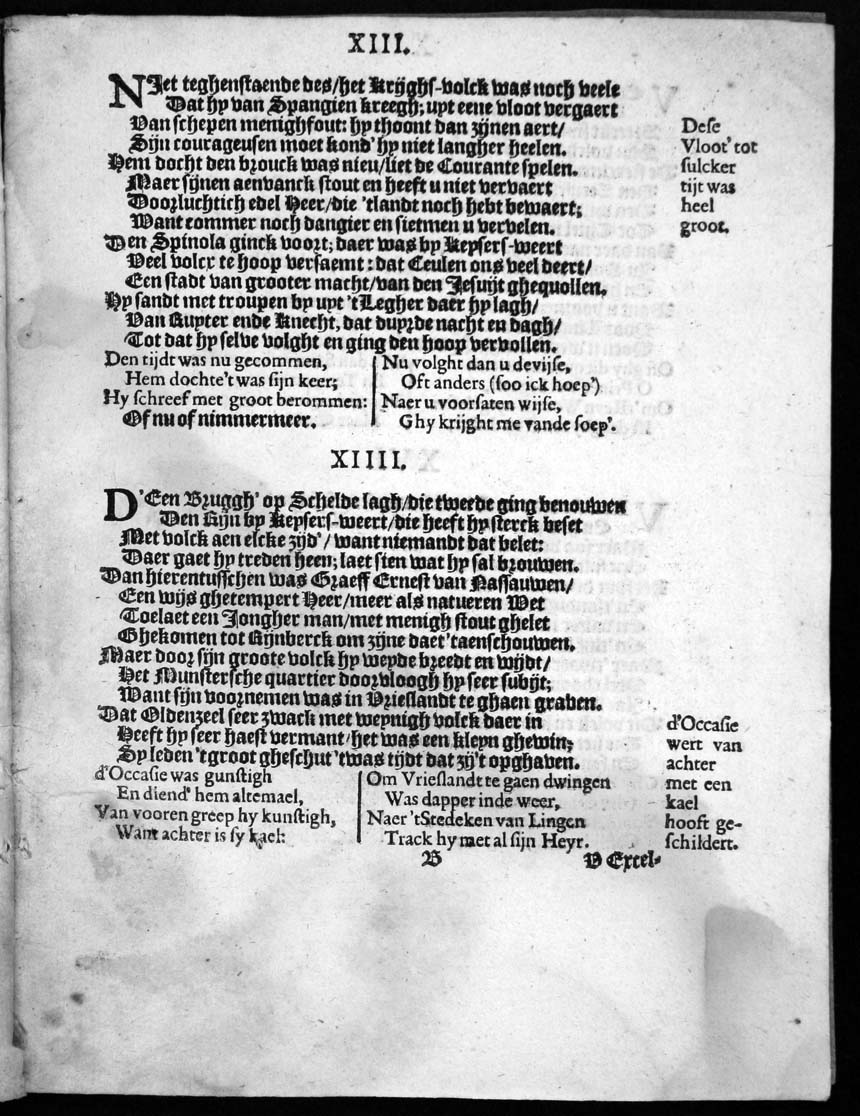 XIII.
NJet teghenstaende des/het Krijghs-volck was noch veele
Dat hy van Spangien kreegh; uyt eene vloot vergaert
Van schepen menighfout: hy thoont dan zijnen aert/
Sijn courageusen moet kond' hy niet langher heelen.
Hem docht den brouck was nieu/liet de Courante spelen.
Maer sijnen aenvanck stout en heeft u niet vervaert
Doorluchtich edel Heer/die 'tlandt noch hebt bewaert;
Want commer noch dangier en sietmen u vervelen.
Den Spinola ginck voort; daer was by Keysers-weert
Veel volcx te hoop versaemt: dat Ceulen ons veel deert/
Een stadt van grooter macht/van den Jesuijt ghequollen.
Hy sandt met troupen by uyt 'tLegher daer hy lagh/
Van Ruyter ende Knecht, dat duyrde nacht en dagh/
Tot dat hy selve volght en ging den hoop vervollen.
Dese
Vloot' tot
sulcker
tijt was
heel
groot.
Den tijdt was nu gecommen,
Hem dochte't was sijn keer;
Hy schreef met groot berommen:
Of nu of nimmermeer.
Nu volght dan u devijse,
Oft anders (soo ick hoep')
Naer u voorsaten wijse,
Ghy krijght me vande soep'.
XIIII.
D'Een Bruggh' op Schelde lagh/die tweede ging benouwen
Den Rijn by Keysers-weert/die heeft hy sterck beset
Met volck aen elcke zijd'/want niemandt dat belet:
Daer gaet hy treden heen; laet sien wat hy sal brouwen.
Dan hierentusschen was Graeff Ernest van Nassauwen/
Een wijs ghetempert Heer/meer als natueren Wet
Toelaet een Jongher man/met menigh stout ghelet
Ghekomen tot Rijnberck om zijne daet'taenschouwen.
Maer door sijn groote volck hy weyde breedt en wijdt/
Het Munstersche quartier doorvloogh hy seer subijt;
Want sijn voornemen was in Vrieslandt te ghaen graven.
Dat Oldenzeel seer zwack met weynigh volck daer in
Heeft hy seer haest vermant/het was een kleyn ghewin;
Sy leden 'tgroot gheschut 'twas tijdt dat zy't opghaven.
d'Occasie
wert van
achter
met een
kael
hooft ge-
schildert.
d'Occasie was gunstigh
En diend' hem altemael,
Van vooren greep hy kunstigh,
Want achter is sy kael:
Om Vrieslandt te gaen dwingen
Was dapper inde weer,
Naer 'tStedeken van Lingen
Track hy met al sijn Heyr.
B
V Excel-